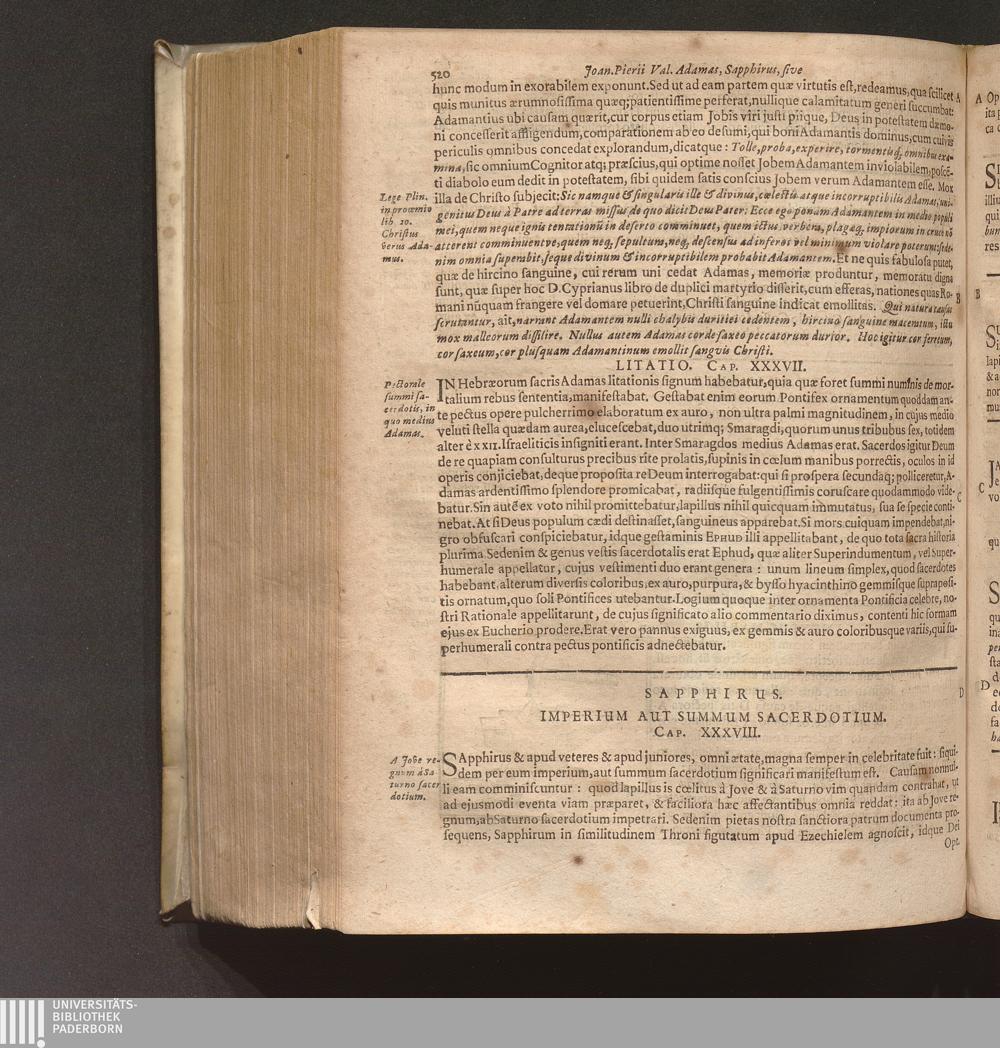 520
Joan. Pierii Val. Adamas, Sapphirus, sive
hunc modum in exorabilem exponunt. Sed ut ad eam partem quæ virtutis est, redeamus, qua scilicet A
quis munitus ærumnosissima quæq; patientissime perferat, nullique calamitatum generi succumbat:
Adamantius ubi causam quærit, cur corpus etiam Jobis viri justi piique, Deus in potestatem dæmo-
ni concesserit affligendum, comparationem ab eo desumi, qui boni Adamantis dominus, cum cuivis
periculis omnibus concedat explorandum, dicatque: Tolle, proba, experire, tormentisq́, omnibus exa-
mina, sic omnium Cognitor atq; præscius, qui optime nosset Jobem Adamantem inviolabilem, poscē-
ti diabolo eum dedit in potestatem, sibi quidem satis conscius Jobem verum Adamantem esse. Mox
illa de Christo subjecit: Sic namque & singularis ille & divinus, cœlestis atque incorruptibilis Adamas, uni-
genitus Deus à Patre ad terras missus de quo dicit Deus Pater: Ecce ego ponam Adamantem in medio populi
mei, quem neque ignis tentationū in deserto comminuet, quem ictus, verbera, plagæq́, impiorum in cruce nō
atterent comminuentve, quem neq́, sepultura, neq́, descensus ad inferos vel minimum violare poterunt: sed e-
nim omnia superabit, seque divinum & incorruptibilem probabit Adamantem. Et ne quis fabulosa putet,
quæ de hircino sanguine, cui rerum uni cedat Adamas, memoriæ produntur, memoratu digna
sunt, quæ super hoc D. Cyprianus libro de duplici martyrio disserit, cum efferas, nationes quas Ro-
mani nūquam frangere vel domare petuerint, Christi sanguine indicat emollitas. Qui naturæ causas B
scrutantur, ait, narrant Adamantem nulli chalybis duritiei cedentem, hircino sanguine maceratum, ictu
mox malleorum dissilire. Nullus autem Adamas corde saxeo peccatorum durior. Hoc igitur cor ferreum,
cor saxeum, cor plusquam Adamantinum emollit sangvis Christi.
Lege Plin.
in proœmio
lib. 20.
Christus
verus Ada-
mas.
LITATIO. CAP. XXXVII.
IN Hebræorum sacris Adamas litationis signum habebatur, quia quæ foret summi numinis de mor-
talium rebus sententia, manifestabat. Gestabat enim eorum Pontifex ornamentum quoddam an-
te pectus opere pulcherrimo elaboratum ex auro, non ultra palmi magnitudinem, in cujus medio
veluti stella quædam aurea, elucescebat, duo utrimq; Smaragdi, quorum unus tribubus sex, totidem
alter è XXII. Israeliticis insigniti erant. Inter Smaragdos medius Adamas erat. Sacerdos igitur Deum
de re quapiam consulturus precibus rite prolatis, supinis in cœlum manibus porrectis, oculos in id
operis conjiciebat, deque proposita re Deum interrogabat: qui si prospera secundaq; polliceretur, A-
damas ardentissimo splendore promicabat, radiisque fulgentissimis coruscare quodammodo vide- C
batur. Sin autē ex voto nihil promittebatur, lapillus nihil quicquam immutatus, sua se specie conti-
nebat. At si Deus populum cædi destinasset, sanguineus apparebat. Si mors cuiquam impendebat, ni-
gro obfuscari conspiciebatur, idque gestaminis EPHUD illi appellitabant, de quo tota sacra historia
plurima. Sedenim & genus vestis sacerdotalis erat Ephud, quæ aliter Superindumentum, vel Super-
humerale appellatur, cujus vestimenti duo erant genera: unum lineum simplex, quod sacerdotes
habebant. alterum diversis coloribus, ex auro, purpura, & bysso hyacinthino gemmisque supraposi-
tis ornatum, quo soli Pontifices utebantur. Logium quoque inter ornamenta Pontificia celebre, no-
stri Rationale appellitarunt, de cujus significato alio commentario diximus, contenti hic formam
ejus ex Eucherio prodere. Erat vero pannus exiguus, ex gemmis & auro coloribusque variis, qui su-
perhumerali contra pectus pontificis adnectebatur.
Pectorale
summi sa-
cerdotis, in
quo medius
Adamas.
SAPPHIRUS. D
IMPERIUM AUT SUMMUM SACERDOTIUM.
CAP. XXXVIII.
SApphirus & apud veteres & apud juniores, omni ætate, magna semper in celebritate fuit: siqui-
dem per eum imperium, aut summum sacerdotium significari manifestum est. Causam nonnul-
li eam comminiscuntur: quod lapillus is cœlitus à Jove & à Saturno vim quandam contrahat, ut
ad ejusmodi eventa viam præparet, & faciliora hæc affectantibus omnia reddat: ita ab Jove re-
gnum, ab Saturno sacerdotium impetrari. Sedenim pietas nostra sanctiora patrum documenta pro-
sequens, Sapphirum in similitudinem Throni figutatum apud Ezechielem agnoscit, idque Dei
Opt.
A Jove re-
gnum à Sa-
turno sacer
dotium.
UNIVERSITÄTS-
BIBLIOTHEK
PADERBORN